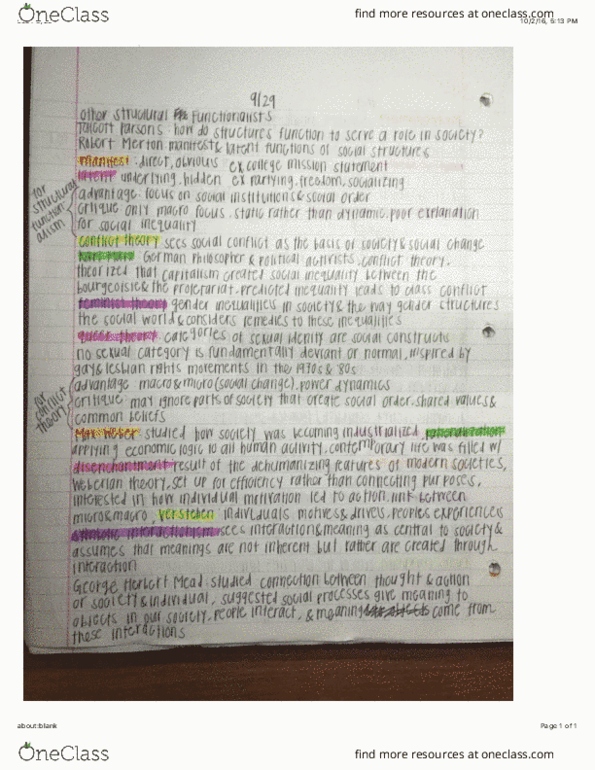 OneClass
find more resources at oneclass.com
10/2/16, 6:13 PM
9/29
other structural functionalists
Talcott Parsons: how do structures function to serve a role in society?
Robert Merton: manifest & latent functions of social structures
manifest: direct, obvious ex college mission statement
latent: underlying, hidden ex partying, freedom, socializing
for structural functionalism
advantage: focus on social institutions & social order
critique only macro focus, static rather than dynamic, poor explanation
for social inequality
conflict theory sees social conflict as the basis of society & social change
German philosopher & political activists, conflict theory,
theorized that capitalism created social inequality between the
bourgeoisie & the proletariat, predicted inequality leads to class conflict
feminist theory gender inequalities in society & the way gender structures
the social world & considers remedies to these inequalities
queer theory: categories of sexual idenity are social constructs
no sexual category is fundamentally deviant or normal, inspired by
gay & lesbian rights movements in the 1970s & '80s
for conflict theory
advantage: macro & micro (social change), power dynamics
critique: may ignore parts of society that create social order, shared values &
common beliefs
Max Weber studied how society was becoming industrialized, rationalization
applying economic logic to all human activity, contemporary life was filled w/
disenchantment result of the dehumanizing features of modern societies,
Weberian theory, set up for efficiency rather than connecting purposes,
interested in how individual motivation led to action, link between
micro & macro, verstehen individuals motives & drives, peoples experiences
symbolic interactionism sees interaction & meaning as central to society &
assumes that meanings are not inherent but rather are created through
interaction
George Herbert Mead: studied connection between thought & action
or society & individual, suggested social processes give meaning to
objects in our society. People interact, & meaning come from
these interactions
about:blank
Page 1 of 1
OneClass
find more resources at oneclass.com